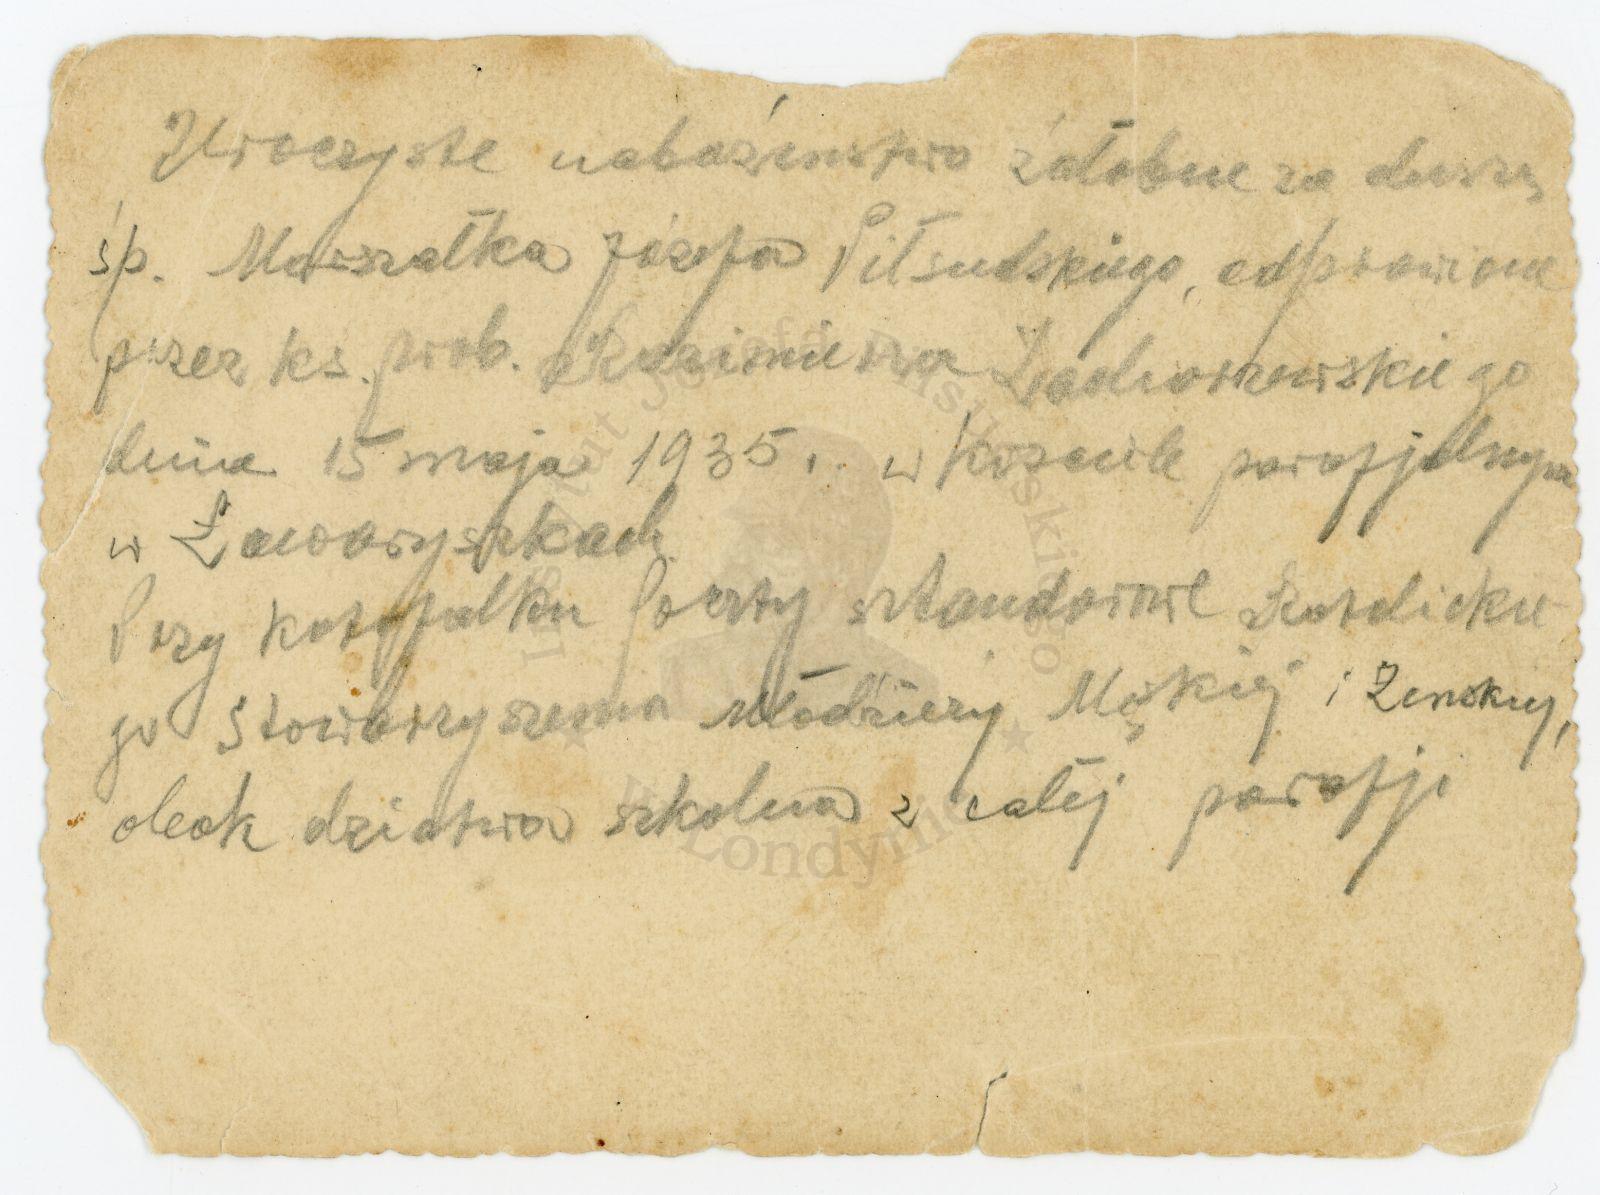 Uroczyste nabożeństwo żałobne za duszę
śp. Marszałka Józefa Piłsudskiego, odprawione
przez ks. prob. Kazimierza
dnia 15 maja 1935. w kościele parafjalnym
w Ławaryszkach.
Przy katafalku poczty sztandarowe Katolickie
go Stowarzyszenia Młodzieży Męskiej i Żeńskiej,
obok dziatwa szkolna z całej parafji
Instytut Józefa Piłsudskiego
w Londynie